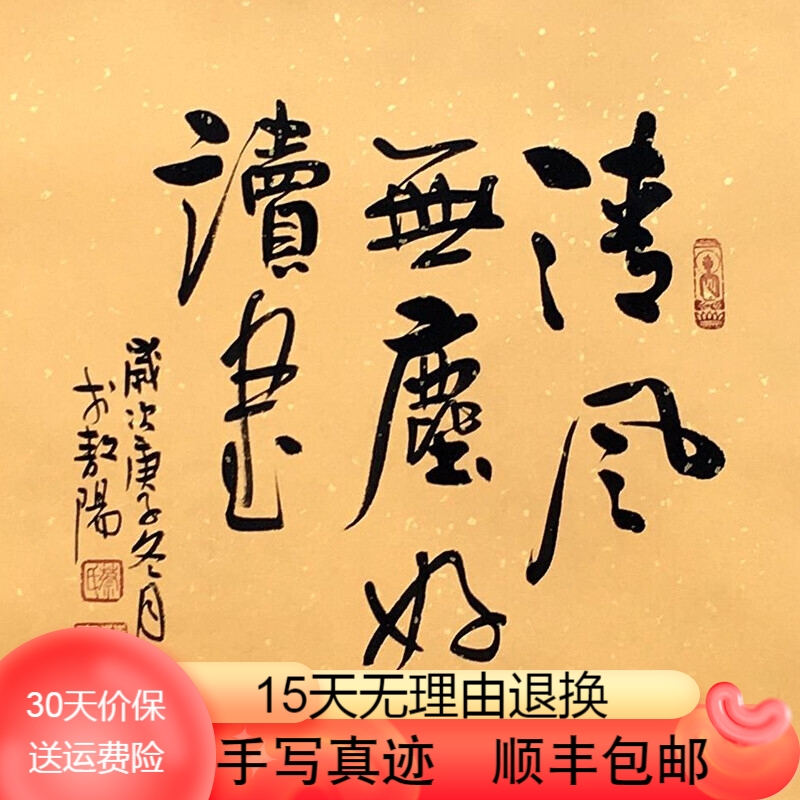 清风
無塵好
讀书
歲次庚子冬月
陽
30天价保
送运费险
15天无理由退换
手写真迹 顺丰包邮